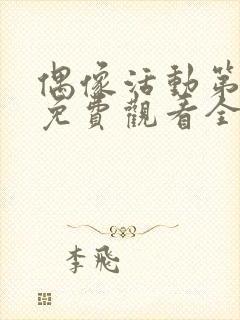 偶像活動第
免費觀看全
李飛